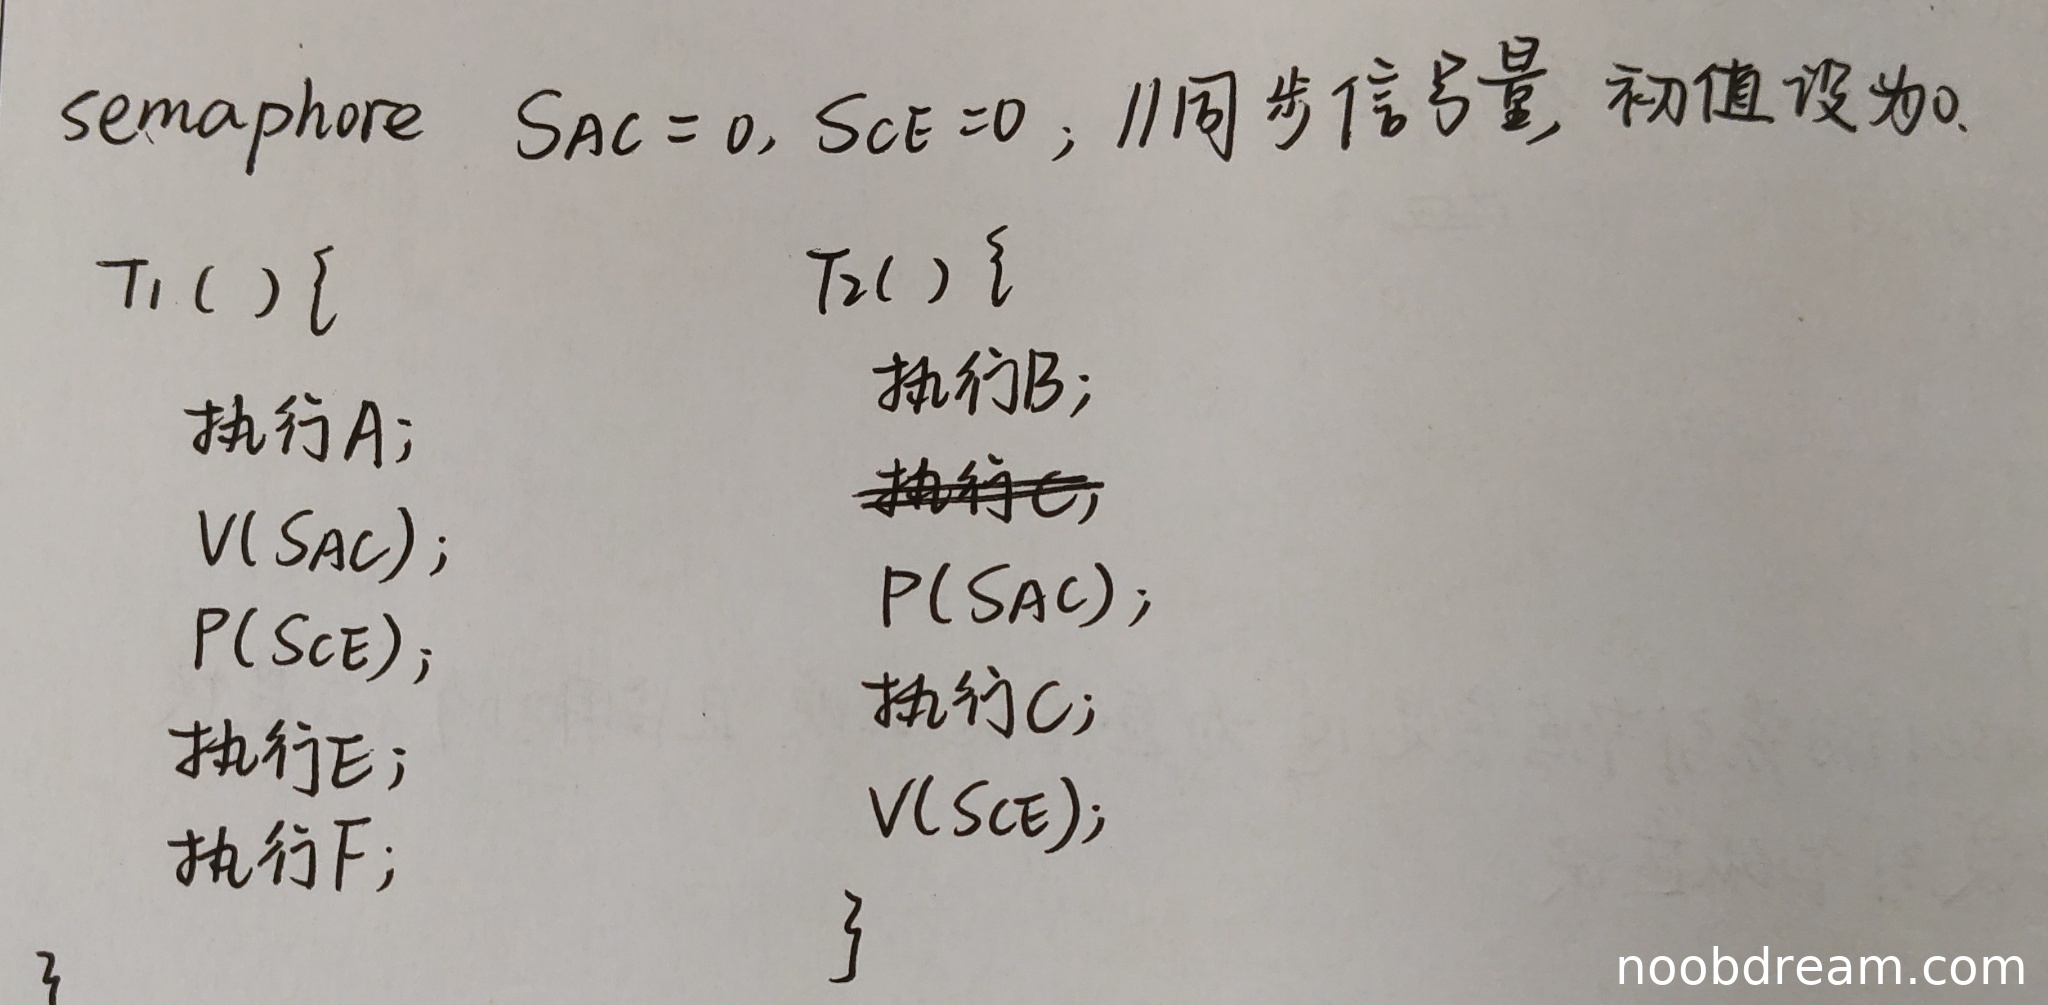 semaphore SAC = 0, SCE = 0; //同步信号量, 初值设为0.
T1(){
执行A;
V(SAC);
P(SCE);
执行E;
执行F;
}
T2(){
执行B;
执行C;
P(SAC);
执行C;
V(SCE);
}
noobdream.com